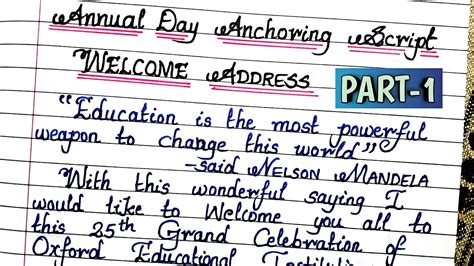 Annual Day Anchoring Script
WELCOME ADDRESS PART-1
"Education is the most powerful
weapon to change this world"
-said NELSON MANDELA
With this wonderful saying I
would like to Welcome you all to
this 25th Grand Celebration of
Oxford Educational